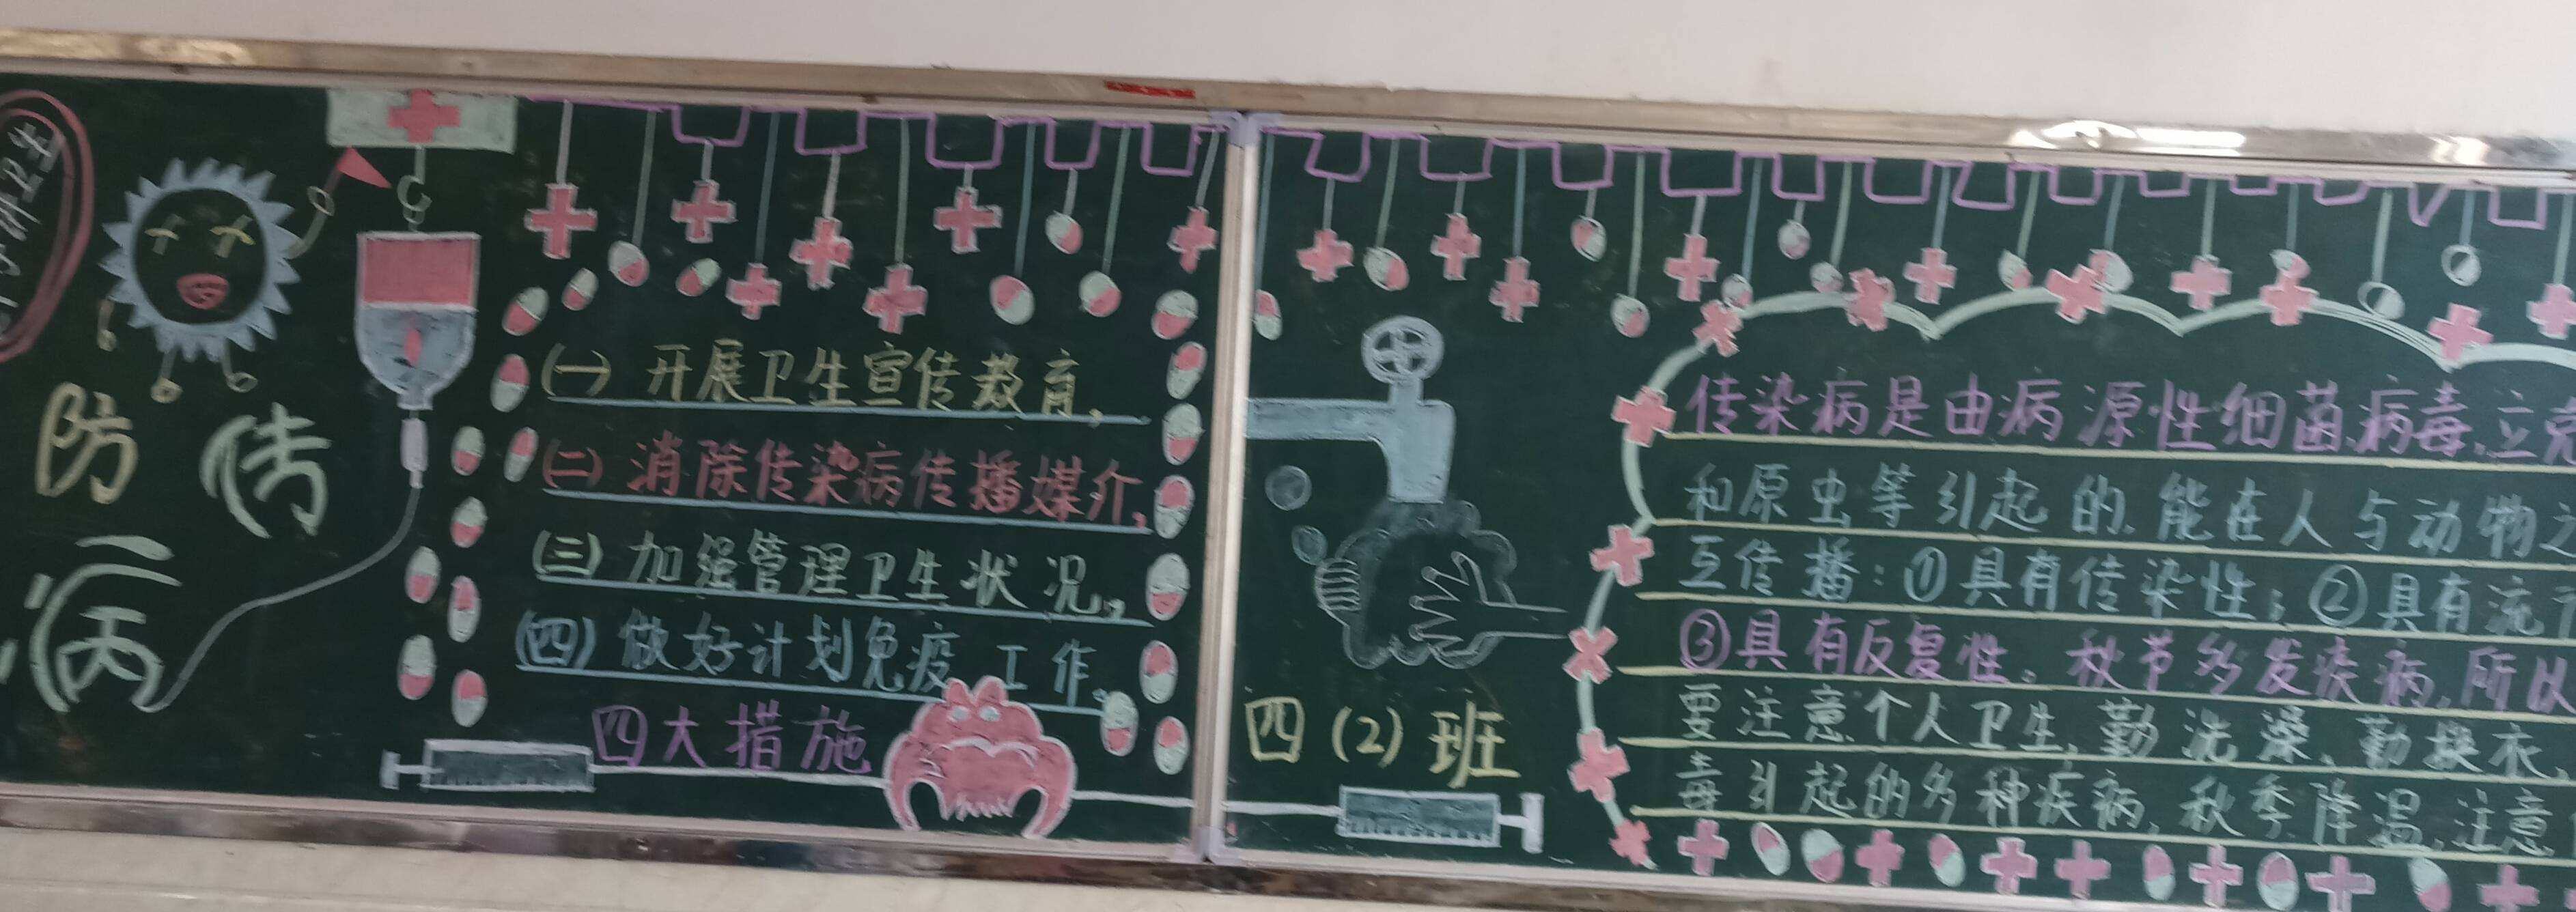 卫生
防传
病
(一)开展卫生宣传教育,
(二)消除传染病传播媒介,
(三)加强管理卫生状况。
(四)做好计划免疫工作。
四大措施
四(2)班
传染病是由病源性细菌,病毒,立克
和原虫等引起的,能在人与动物之
互传播:①具有传染性;②具有流行
③具有反复性。秋节多发疾病,所以
要注意个人卫生,勤洗澡,勤换衣,
毒引起的多种疾病,秋季降温,注意